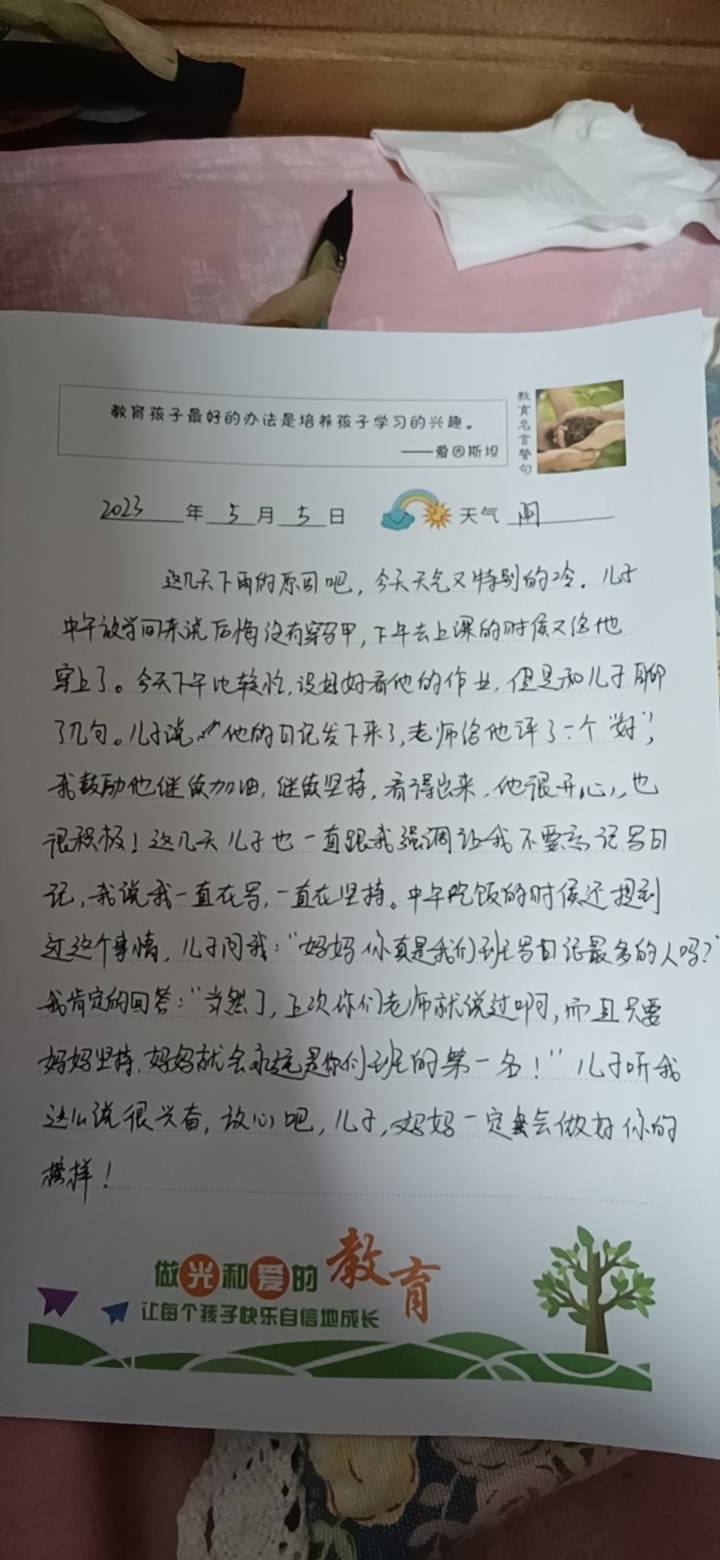 教育孩子最好的办法是培养孩子学习的兴趣。
——爱因斯坦
教育名言警句
2023年5月5日 天气 雨
这几天下雨的原因吧，今天天气又特别的冷。儿子
中午放学回来说后悔没有穿马甲，下午去上课的时候又给他
穿上了。今天下午比较忙，没好好看他的作业，但是和儿子聊
了几句。儿子说 他的日记发下来了，老师给他评了一个“好”，
我鼓励他继续加油，继续坚持，看得出来，他很开心，也
很积极！这几天儿子也一直跟我强调让我不要忘记写日
记，我说我一直在写，一直在坚持。中午吃饭的时候还提到
过这个事情，儿子问我：“妈妈你真是我们班写日记最多的人吗？”
我肯定的回答：“当然了，上次你们老师就说过啊，而且只要
妈妈坚持，妈妈就会永远是你们班的第一名！”儿子听我
这么说很兴奋，放心吧，儿子，妈妈一定会做好你的
榜样！
做光和爱的教育
让每个孩子快乐自信地成长